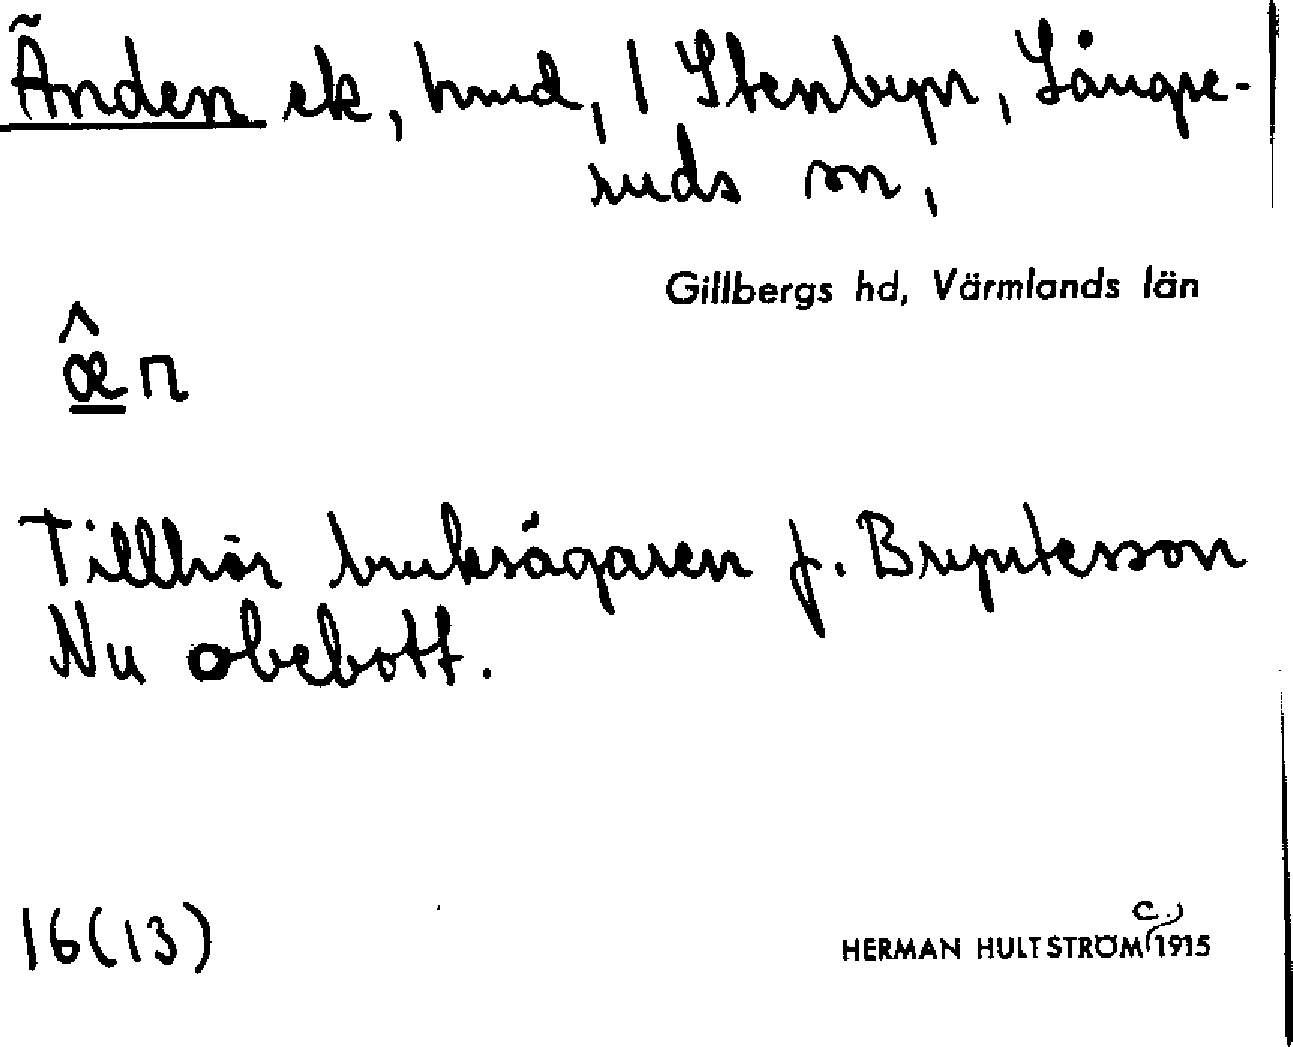 Änden ek, hmd, 1 Stenbyn, Långse-
ruds sn,
Gillbergs hd, Värmlands län
æ̂n
Tillhör bruksägaren f. Bryntesson
Nu obebott.
16(13)
HERMAN HULTSTRÖM (c.) 1915